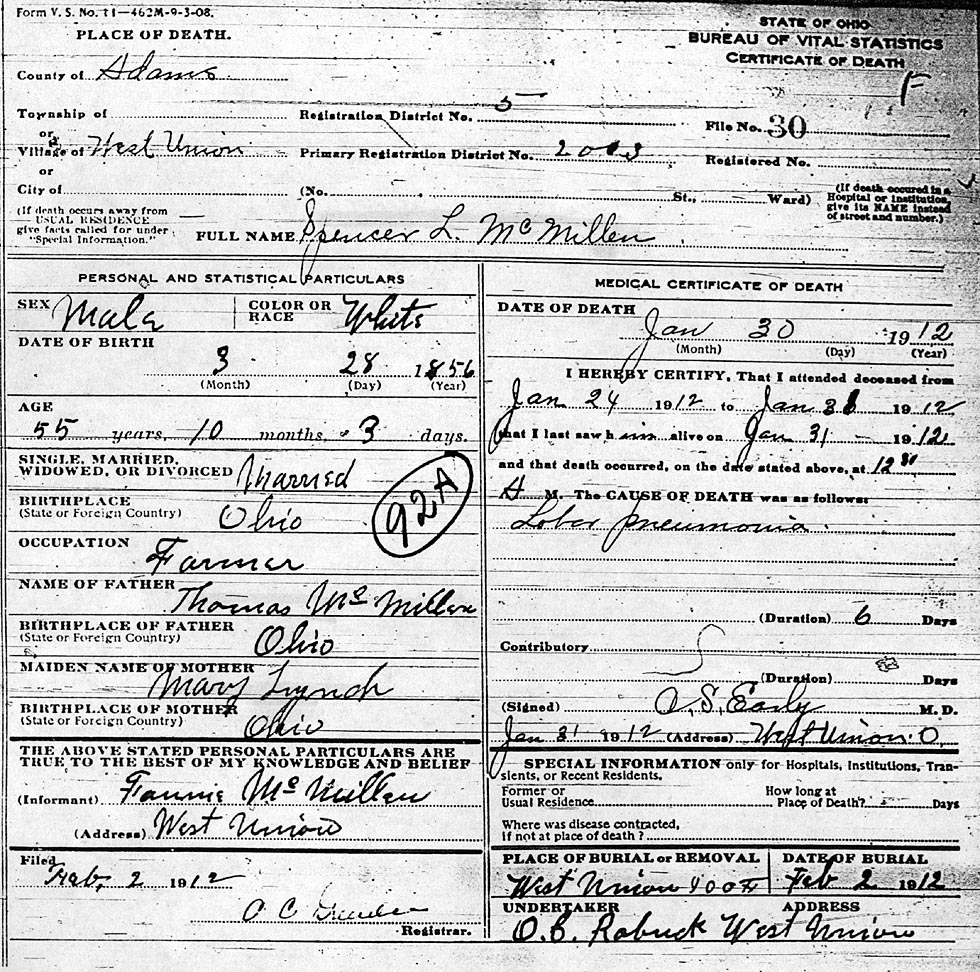 Form V. S. No. 11—462M-9-3-08.
PLACE OF DEATH.
County of Adams
STATE OF OHIO
BUREAU OF VITAL STATISTICS
CERTIFICATE OF DEATH
F
Township of
Registration District No. 5
File No. 30
or
Village of West Union
Primary Registration District No.
Registered No.
or
City of
(No. St., Ward)
(If death occured in a
Hospital or Institution,
give its NAME instead
of street and number.)
(If death occurs away from
USUAL RESIDENCE
give facts called for under
"Special Information."
FULL NAME Spencer L. McMillen
PERSONAL AND STATISTICAL PARTICULARS
SEX Male
COLOR OR
RACE White
DATE OF BIRTH
3 28 1856
(Month) (Day) (Year)
AGE
55 years, 10 months, 3 days.
SINGLE, MARRIED,
WIDOWED, OR DIVORCED Married
BIRTHPLACE
(State or Foreign Country) Ohio
92A
OCCUPATION
Farmer
NAME OF FATHER
Thomas McMillen
BIRTHPLACE OF FATHER
(State or Foreign Country) Ohio
MAIDEN NAME OF MOTHER
Mary Lynch
BIRTHPLACE OF MOTHER
(State or Foreign Country) Ohio
THE ABOVE STATED PERSONAL PARTICULARS ARE
TRUE TO THE BEST OF MY KNOWLEDGE AND BELIEF
(Informant) Fannie McMillen
(Address) West Union
Filed
Feb, 2 1912
Registrar.
MEDICAL CERTIFICATE OF DEATH
DATE OF DEATH
Jan 30 1912
(Month) (Day) (Year)
I HEREBY CERTIFY, That I attended deceased from
Jan 24 1912 to Jan 1912
that I last saw him alive on Jan 31 1912
and that death occurred, on the date stated above, at 12
A M. The CAUSE OF DEATH was as follows:
Lobar pneumonia
(Duration) 6 Days
Contributory
(Duration) Days
(Signed) O.S. Early M.D.
Jan 31 1912 (Address) West Union O
SPECIAL INFORMATION only for Hospitals, Institutions, Tran-
sients, or Recent Residents.
Former or
Usual Residence
How long at
Place of Death? Days
Where was disease contracted,
if not at place of death?
PLACE OF BURIAL or REMOVAL
West Union
DATE OF BURIAL
Feb 2 1912
UNDERTAKER
O.B. Robuck
ADDRESS
West Union